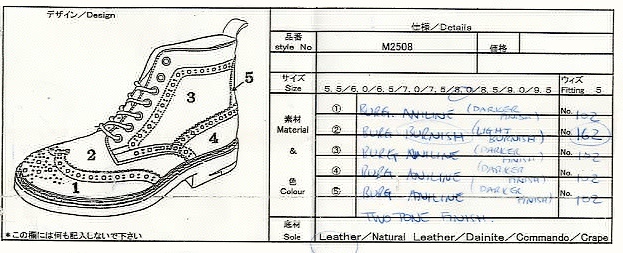 デザイン/Design
仕様/Details
品番
style No
M2508
価格
サイズ
Size
5.5/6.0/6.5/7.0/7.5/8.0/8.5/9.0/9.5
ウィズ
Fitting 5
素材
Material
&
色
Colour
① BURG. ANILINE (DARKER FINISH) No. 102
② BURG BURNISH (LIGHT BURNISH) No. 162
③ BURG ANILINE (DARKER FINISH) No. 102
④ BURG ANILINE (DARKER FINISH) No. 102
⑤ BURG ANILINE (DARKER FINISH) No. 102
TWO TONE FINISH.
底材
Sole
Leather/Natural Leather/Dainite/Commando/Crape
1
2
3
4
5
*この欄には何も記入しないで下さい